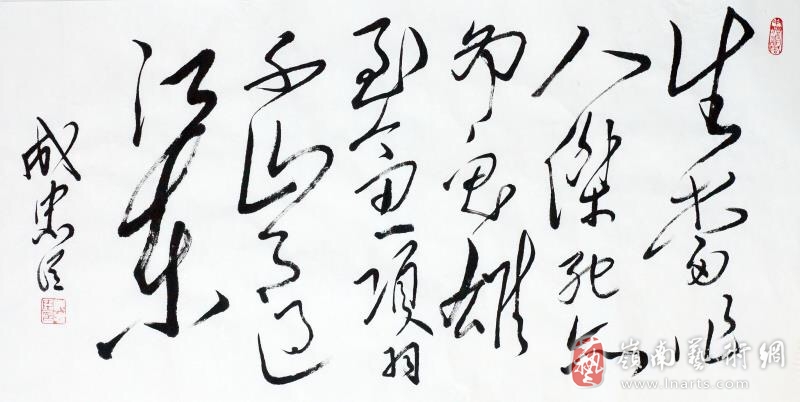 生當作
人傑死亦
為鬼雄
至今思項羽
不肯過
江東
成忠
藝 嶺南藝術網
www.lnarts.com